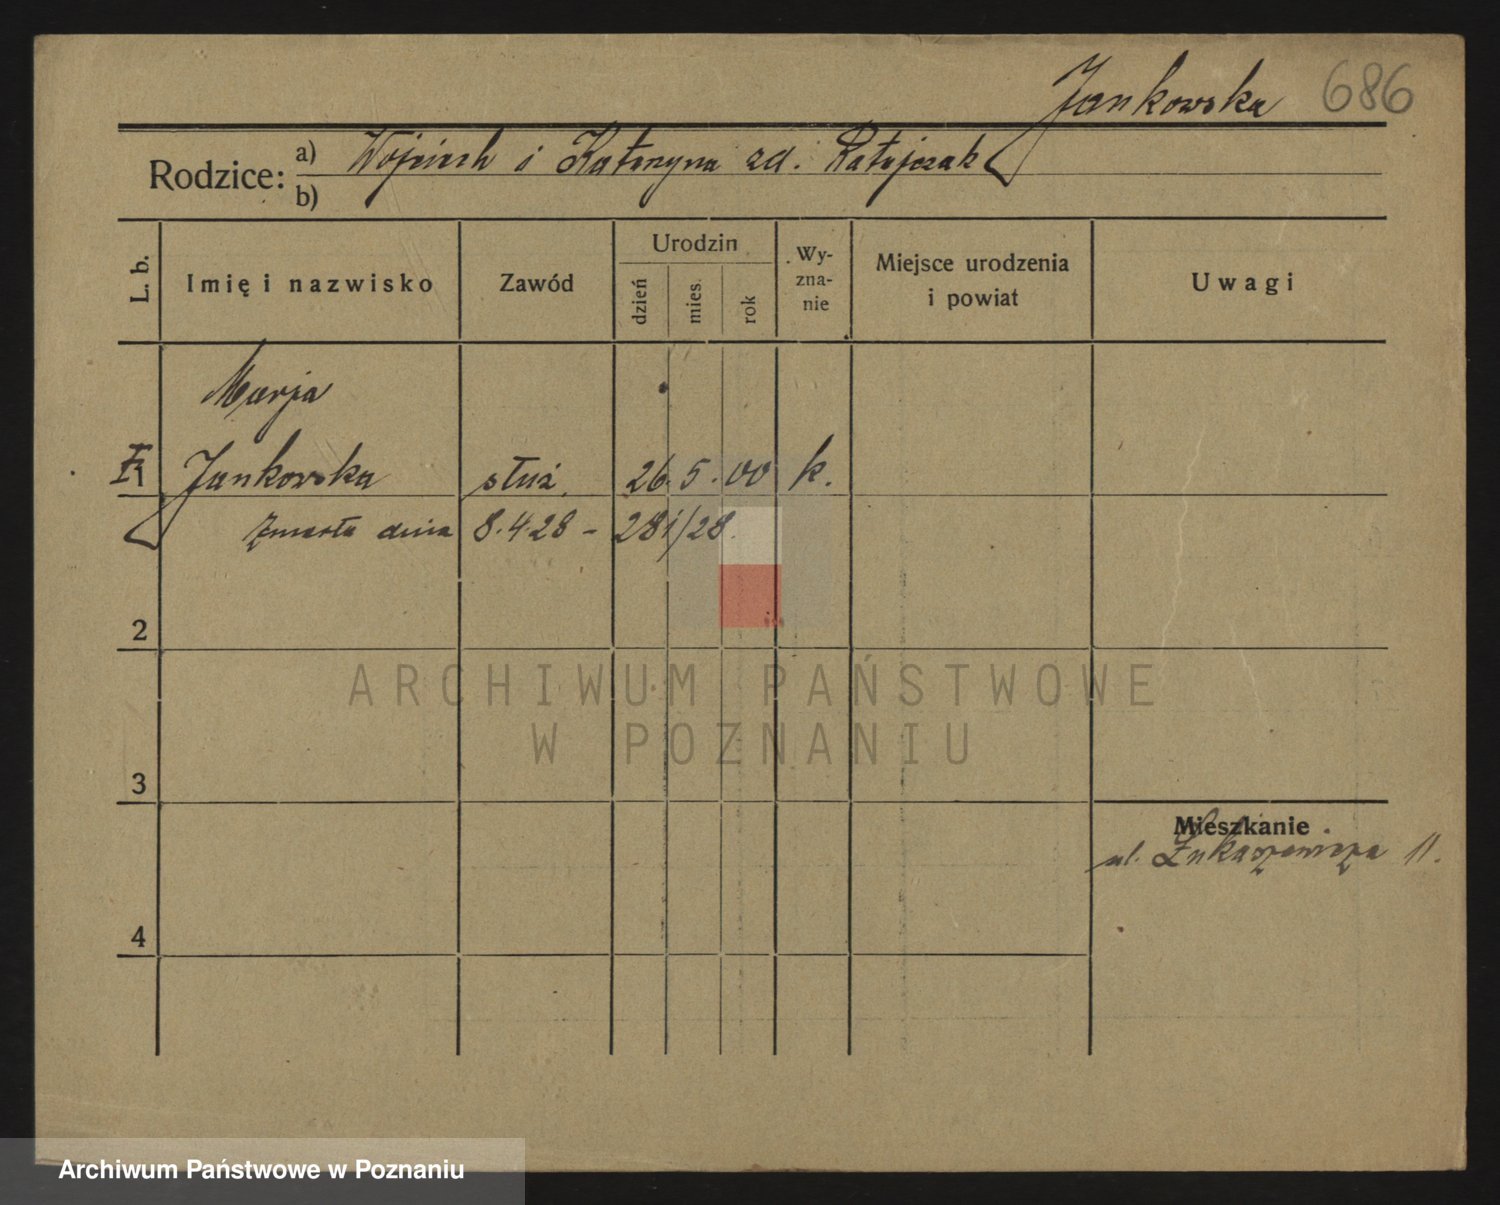 Jankowska 686
Rodzice: a) Wojciech i Katarzyna zd. Ratajczak
b)
L. b.
Imię i nazwisko
Zawód
Urodzin
dzień
mies.
rok
Wy-
zna-
nie
Miejsce urodzenia
i powiat
Uwagi
Marja
1 Jankowska służ. 26. 5. 00 k.
zmarła dnia 8.4.28 - 281/28.
2
ARCHIWUM PAŃSTWOWE
W POZNANIU
3
Mieszkanie
ul. Łukaszewicza 11.
4
Archiwum Państwowe w Poznaniu